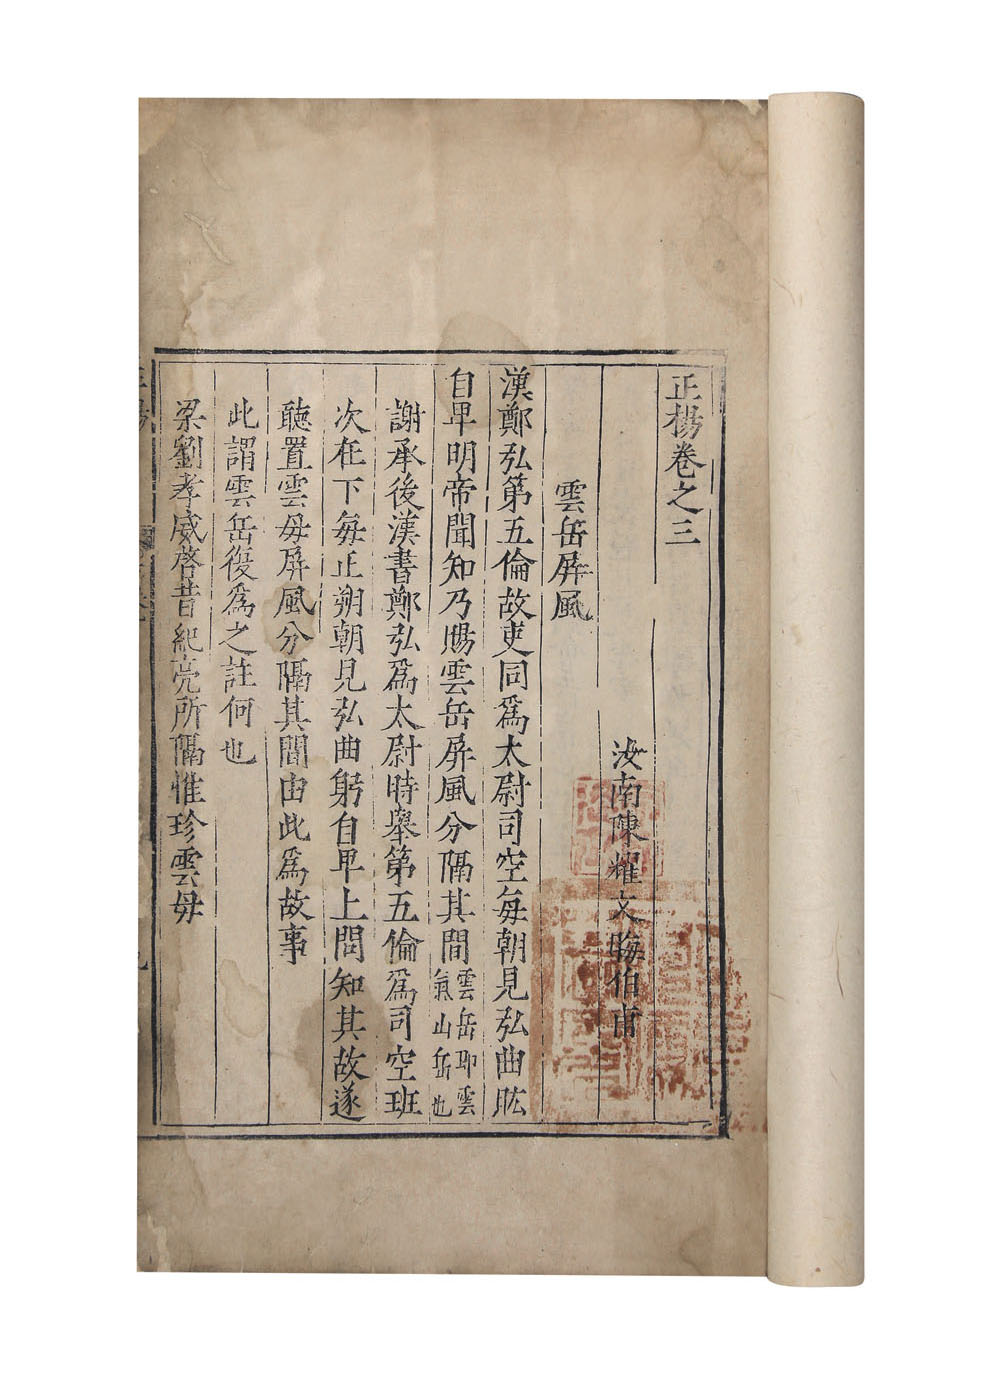 正楊卷之三
汝南陳耀文晦伯甫
雲岳屏風
漢鄭弘第五倫故吏同爲太尉司空每朝見弘曲肱
自卑明帝聞知乃賜雲岳屏風分隔其間雲岳即雲氣山岳也
謝承後漢書鄭弘爲太尉時舉第五倫爲司空班
次在下每正朔朝見弘曲躬自卑上問知其故遂
聽置雲母屏風分隔其間由此爲故事
此謂雲岳復爲之註何也
梁劉孝威啓昔紀亮所隔惟珍雲母